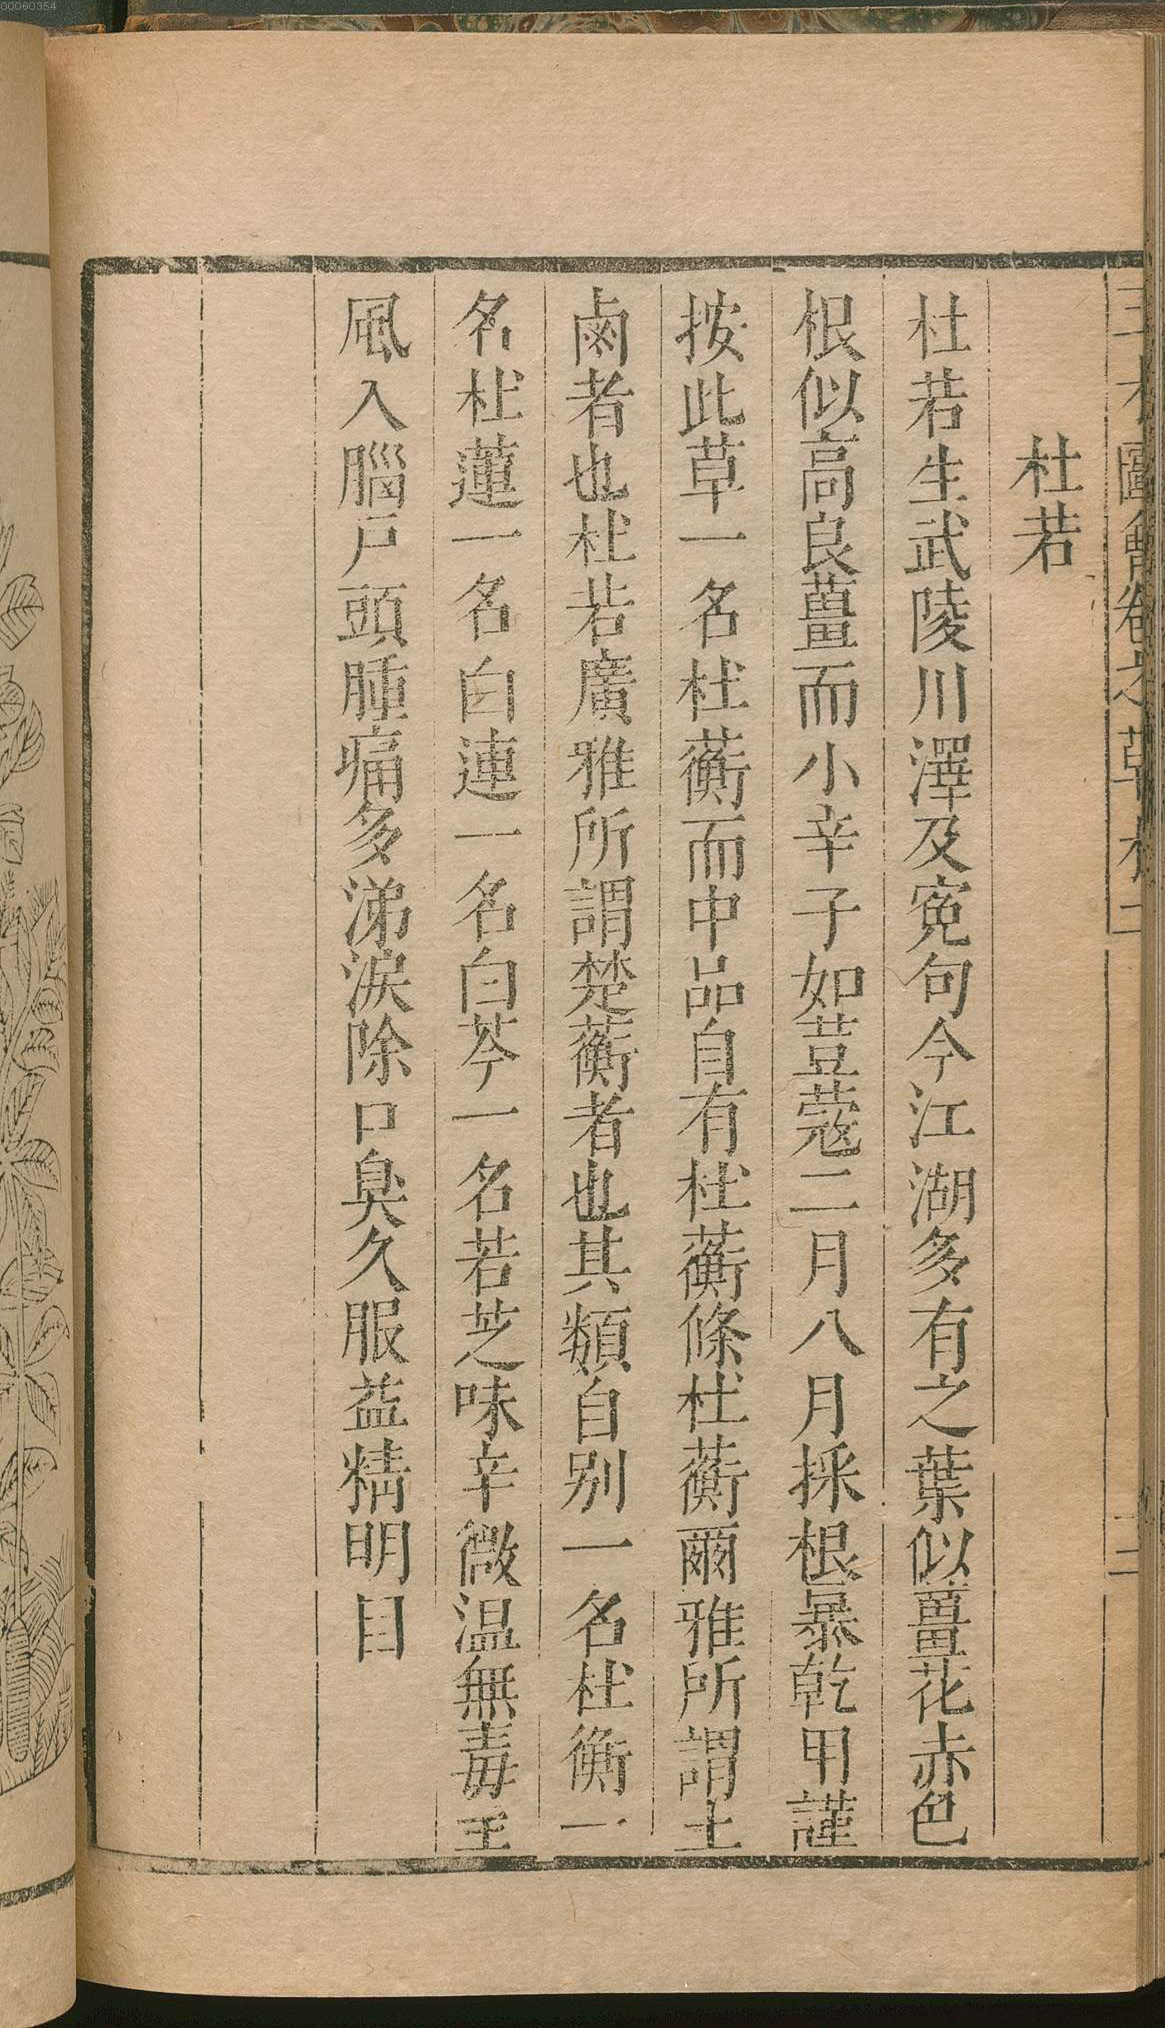 00060354
圖會卷之草木二
二
杜若
杜若生武陵川澤及寃句今江湖多有之葉似薑花赤色
根似高良薑而小辛子如荳蔻二月八月採根暴乾用謹
按此草一名杜蘅而中品自有杜蘅條杜蘅爾雅所謂土
鹵者也杜若廣雅所謂楚蘅者也其類自别一名杜衡一
名杜蓮一名白連一名白芩一名若芝味辛微温無毒主
風入腦戸頭腫痛多涕淚除口臭久服益精明目